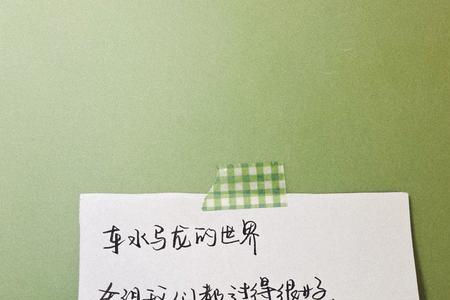 车水马龙的世界
我们都过得很好